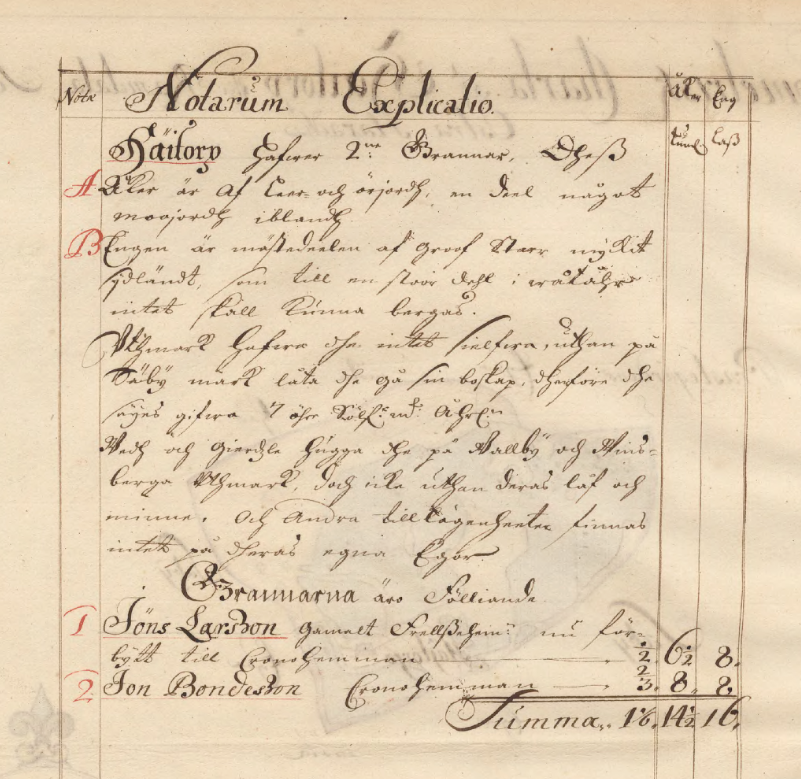 Notæ Notarum Explicatio. Åker Eng
Häitorp hafwer 2ne Grannar, Dheß tunl laß
A Åker är af Leer- och örjordh, en deel något
moojordh iblandh
B Engen är mästedeelen af groof Starr myckit
sydländt, som till en stoor dehl i wåtåhr
intet skall kunna bergas.
Uthmark hafwa dhe intet sielfwa, uthan på
Säby mark låta dhe gå sin boskap, dherföre dhe
säyes gifwa 7 öhre Sölf:r m:t Åhrl:n
Wedh och gierdzle hugga dhe på Wallby och Wins-
berga Uthmark, doch icke uthan deras låf och
minne. Och Andra tillägenheeter finnas
intet på dheras egna Egor.
Grannarna äro Fölliande
1 Jöns Larßon gamalt Frelßehem: nu för-
bytt till Cronohemman 1/2 6 1/2 8.
2 Jon Bondeßon Cronohemman 2/3. 8. 8
Summa. 1 1/6. 14 1/2 16.